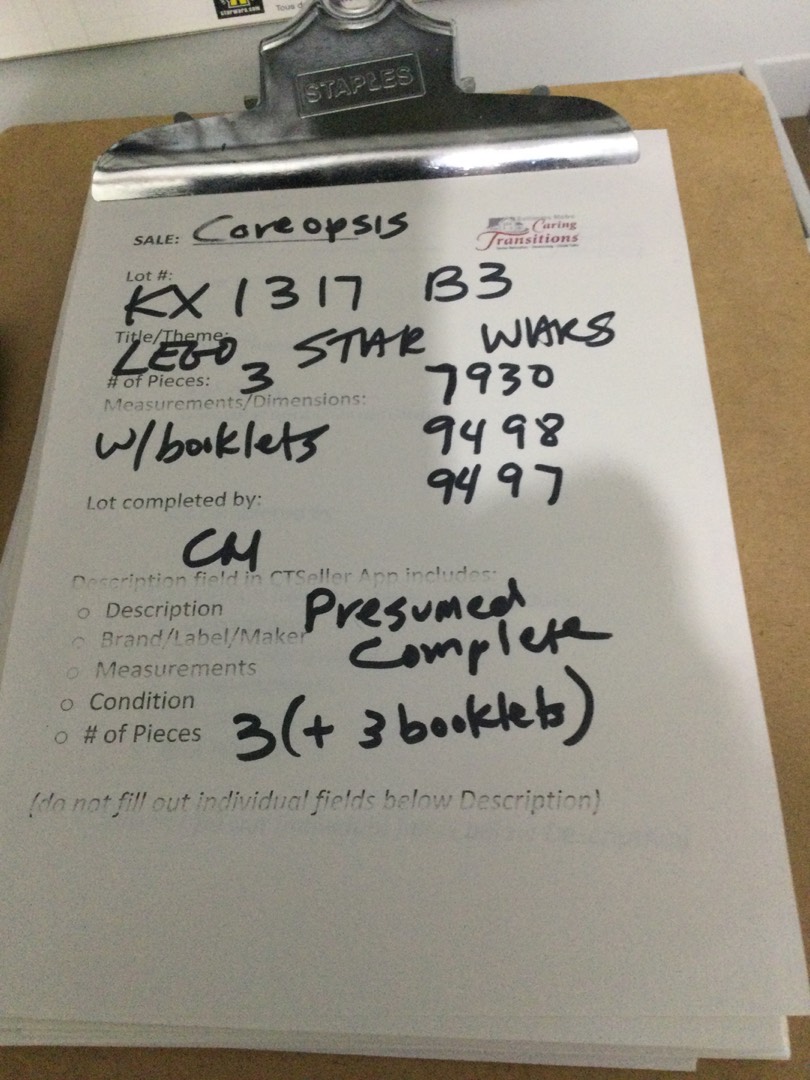 STAPLES
SALE: Coreopsis
Caring
Transitions
Lot #:
KX 1317 B3
Title/Theme:
LEGO STAR WARS
# of Pieces: 3 7930
Measurements/Dimensions:
w/booklets 9498
9497
Lot completed by:
CM
Description field in CTSeller App includes:
○ Description Presumed
○ Brand/Label/Maker Complete
○ Measurements
○ Condition
○ # of Pieces 3 (+ 3 booklets)
(do not fill out individual fields below Description)